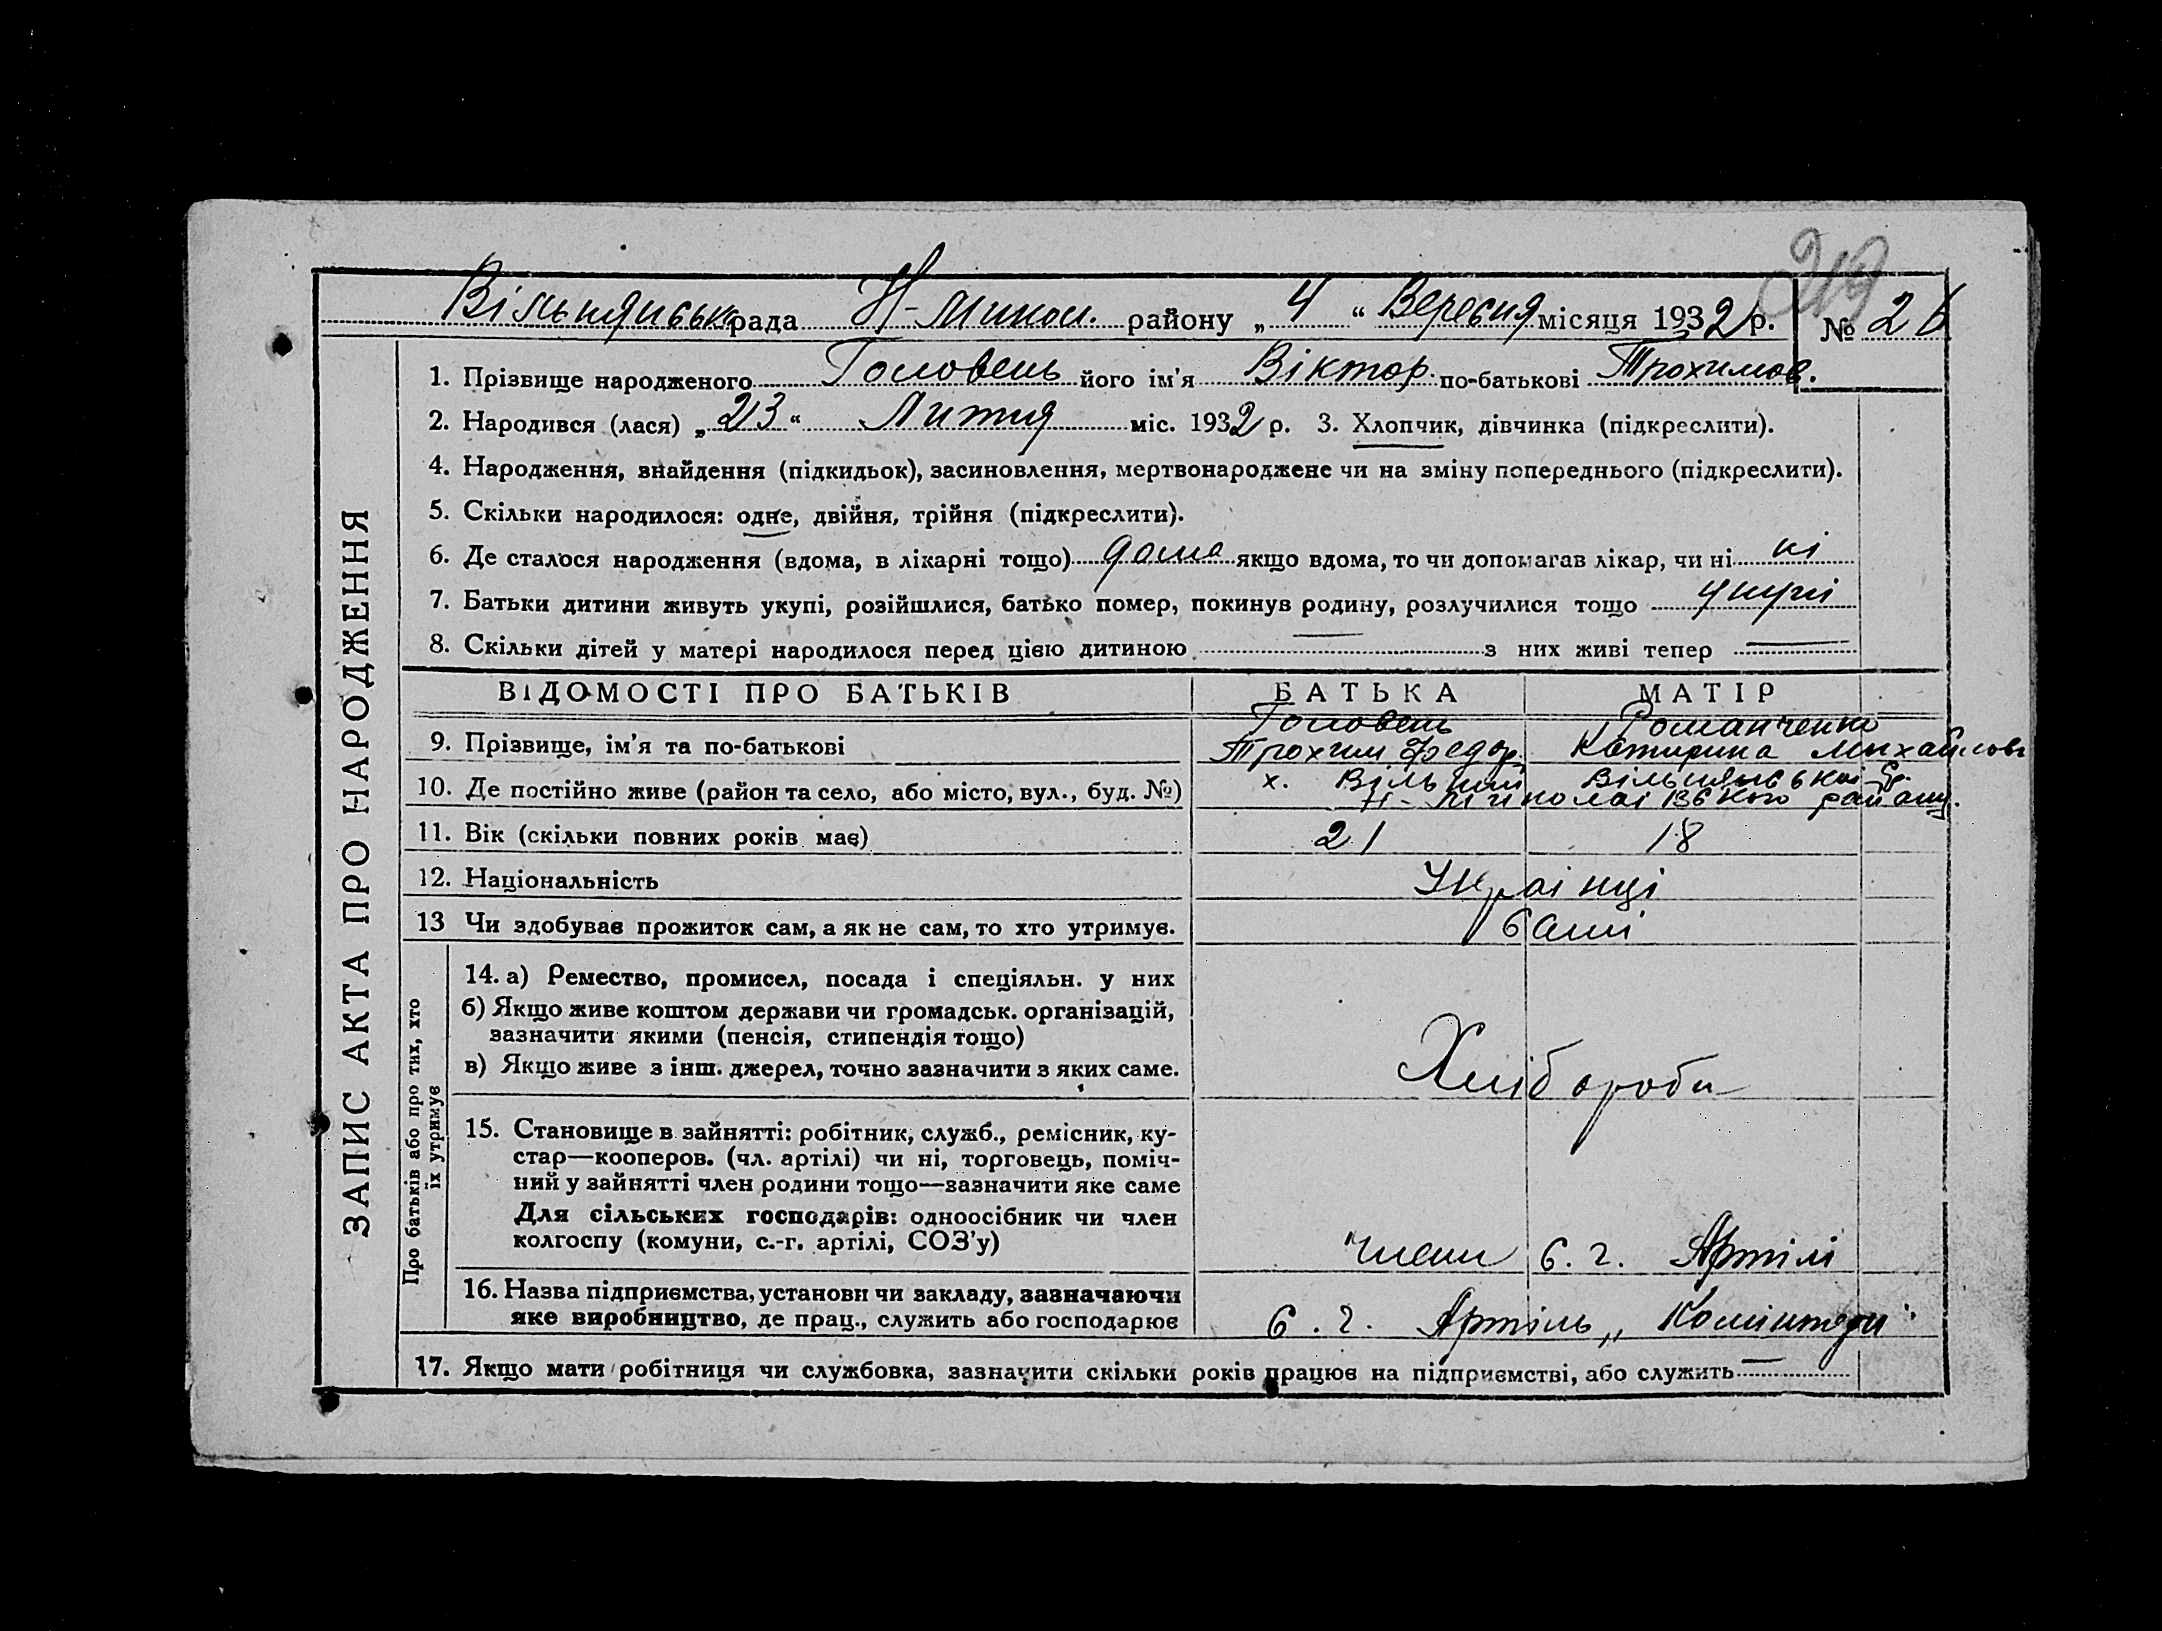 219
Вільнянська рада Н-Микол. району „4“ Вересня місяця 1932 р. № 26
ЗАПИС АКТА ПРО НАРОДЖЕННЯ
1. Прізвище народженого Головень його ім'я Віктор. по-батькові Трохимов.
2. Народився (лася) „23“ Литня міс. 1932 р. 3. Хлопчик, дівчинка (підкреслити).
4. Народження, знайдення (підкидьок), засиновлення, мертвонароджене чи на зміну попереднього (підкреслити).
5. Скільки народилося: одне, двійня, трійня (підкреслити).
6. Де сталося народження (вдома, в лікарні тощо) дома якщо вдома, то чи допомагав лікар, чи ні ні
7. Батьки дитини живуть укупі, розійшлися, батько помер, покинув родину, розлучилися тощо укупі
8. Скільки дітей у матері народилося перед цією дитиною — з них живі тепер —
ВІДОМОСТІ ПРО БАТЬКІВ БАТЬКА МАТІР
Головень Романченко
9. Прізвище, ім'я та по-батькові Трохим Федор. Катирина Михайлов
х. Вільний Вільнянської
10. Де постійно живе (район та село, або місто, вул., буд. №) Н-Миколаівского району.
11. Вік (скільки повних років має) 21 18
12. Національність Украінці
13 Чи здобував прожиток сам, а як не сам, то хто утримує. самі
Про батьків або про тих, хто їх утримує
14. а) Ремество, промисел, посада і спеціяльн. у них
б) Якщо живе коштом держави чи громадськ. організацій,
зазначити якими (пенсія, стипендія тощо)
в) Якщо живе з інш. джерел, точно зазначити з яких саме. Хлібороби
15. Становище в зайнятті: робітник, служб., ремісник, ку-
стар—кооперов. (чл. артілі) чи ні, торговець, поміч-
ний у зайнятті член родини тощо—зазначити яке саме
Для сільських господарів: одноосібник чи член
колгоспу (комуни, с.-г. артілі, СОЗ'у) члени с. г. Артілі
16. Назва підприємства, установи чи закладу, зазначаючи
яке виробництво, де прац., служить або господарює с. г. Артіль „Комінтерн"
17. Якщо мати робітниця чи службовка, зазначити скільки років працює на підприємстві, або служить —